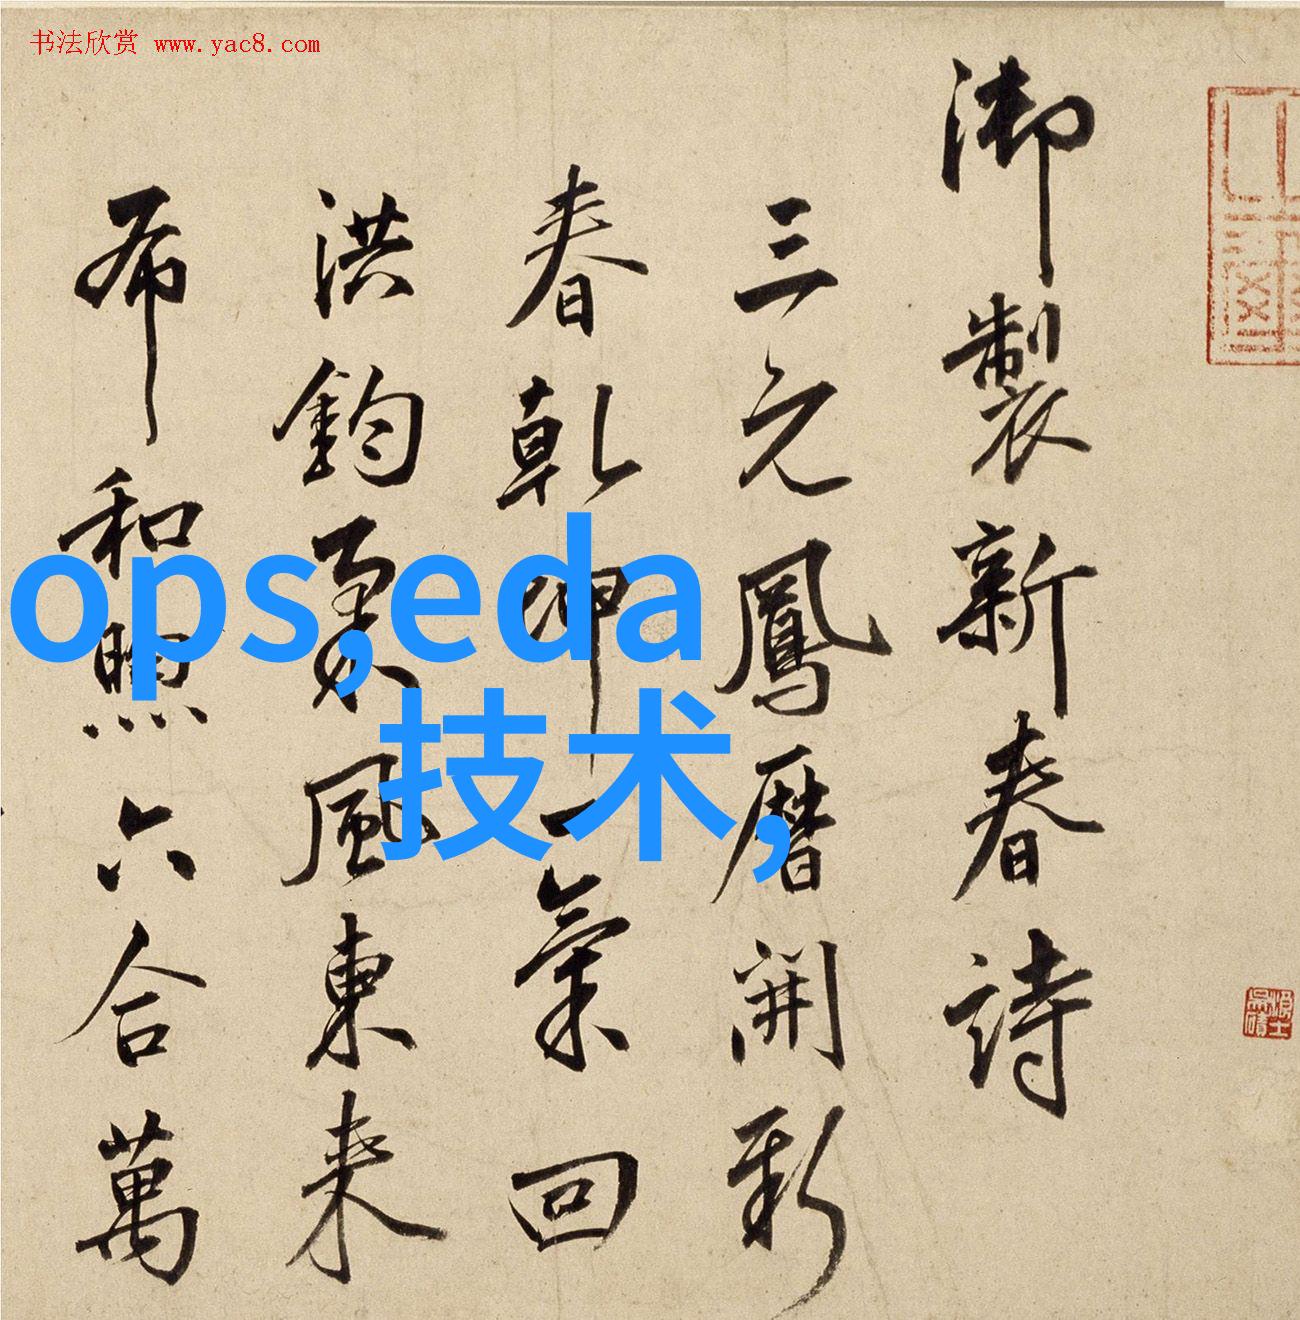 书法欣赏 www.yac8.com
御製新春詩
三元鳳曆開新
春乾坤一氣回
洪鈞柔風東来
布和煦六合萬
ops,eda
技术,